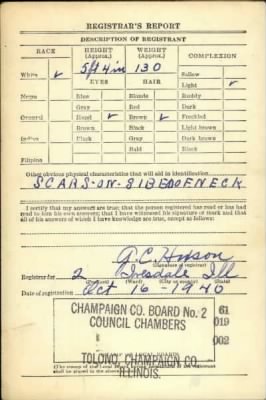 REGISTRAR'S REPORT
DESCRIPTION OF REGISTRANT
RACE HEIGHT (Approx.) WEIGHT (Approx.) COMPLEXION
5 ft 4 in 130
White ✓ EYES HAIR Sallow
Light ✓
Negro Blue Blonde Ruddy
Gray Red Dark
Oriental Hazel ✓ Brown ✓ Freckled
Brown Black Light brown
Indian Black Gray Dark brown
Bald Black
Filipino
Other obvious physical characteristics that will aid in identification
SCARS-ON-SIDE OF NECK
I certify that my answers are true; that the person registered has read or has had
read to him his own answers; that I have witnessed his signature or mark and that
all of his answers of which I have knowledge are true, except as follows:
(Signature of registrar)
Registrar for 2 Ill
(Precinct) (Ward) (City or county) (State)
Date of registration Oct 16-1940
CHAMPAIGN CO. BOARD No. 2 61
COUNCIL CHAMBERS 019
002
TOLONO, CHAMPAIGN CO.
ILLINOIS.